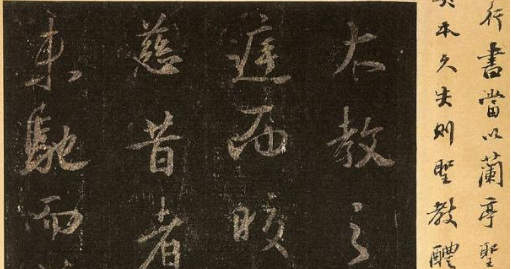 行書當以蘭亭聖
本久失則聖教醴
大教之
庭而皎
慈昔者
未馳而